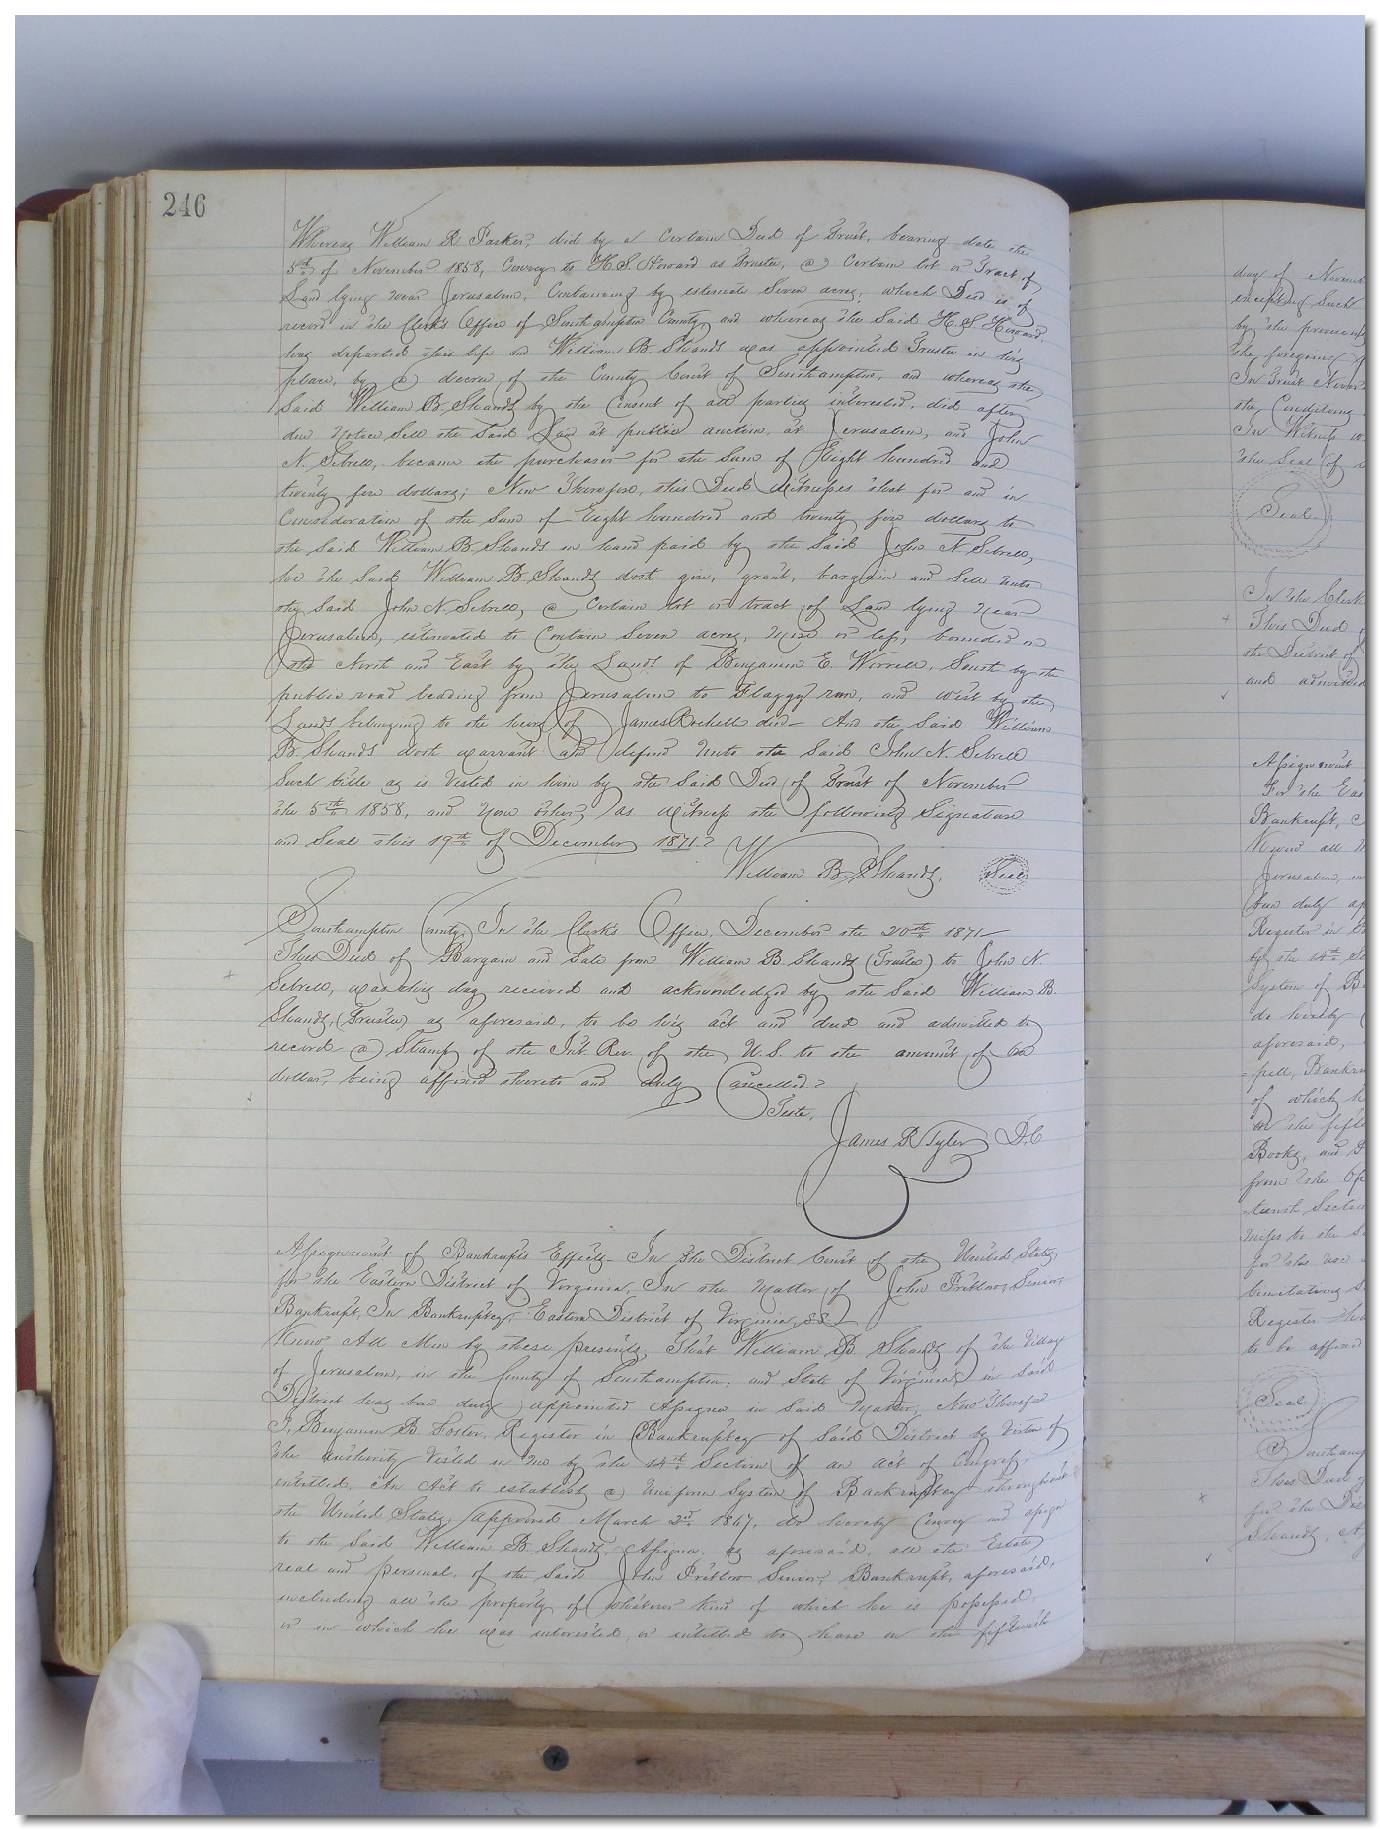 246
Whereas William R Parker, did by a Certain Deed of Trust, bearing date the
5th of November 1858, Convey to H.S. Howard as Trustee, a Certain lot or Tract of
Land lying near Jerusalem, Containing by estimate Seven acres, which Deed is of
record in the Clerks Office of Southampton County, and whereas the Said H.S. Howard,
has departed this life and William B. Shands was appointed Trustee in his
place, by a decree of the County Court of Southampton, and whereas the
Said William B. Shands by the Consent of all parties interested, did after
due notice Sell the Said Land at public auction at Jerusalem, and John
N. Sebrell, became the purchaser for the Sum of Eight hundred and
twenty five dollars; Now Therefore, this Deed Witnesses that for and in
Consideration of the Sum of Eight hundred and twenty five dollars to
the Said William B. Shands in hand paid by the Said John N. Sebrell,
he the Said William B. Shands doth give, grant, bargain and Sell unto
the Said John N. Sebrell, a Certain lot or tract of Land lying near
Jerusalem, estimated to Contain Seven acres, more or less, bounded on
the North and East by the Lands of Benjamin E. Worrell, South by the
public road leading from Jerusalem to Flaggy run, and West by the
Lands belonging to the heirs of James Rochelle decd- And the Said William
B. Shands doth warrant and defend unto the Said John N. Sebrell
Such title as is Vested in him by the Said Deed of Trust of November
the 5th 1858, and none other, As Witness the following Signature
and Seal this 19th of December 1871.
William B. Shands, Seal
Southampton County, In the Clerk's Office, December the 20th 1871
This Deed of Bargain and Sale from William B. Shands (Trustee) to John N.
Sebrell, was this day received and acknowledged by the Said William B.
Shands, (Trustee) as aforesaid, to be his act and deed and admitted to
record a Stamp of the Int. Rev. of the U.S. to the amount of
dollar, being affixed thereto and duly Cancelled.
Teste,
James R Tyler D.C
Assignment of Bankrupts Effects- In the District Court of the United States
for the Eastern District of Virginia, In the Matter of John Pretlow, Senior,
Bankrupt, In Bankruptcy, Eastern District of Virginia, SS
Know All Men by these presents, That William B. Shands of the Village
of Jerusalem, in the County of Southampton, and State of Virginia, in Said
District has been duly appointed Assignee in Said Matter, Now Therefore
I, Benjamin B. Foster, Register in Bankruptcy of Said District by Virtue of
the authority Vested in me by the 14th Section of an act of Congress,
entitled, An Act to establish a Uniform System of Bankruptcy throughout
the United States, approved March 2nd 1867, do hereby Convey and assign
to the Said William B. Shands, Assignee, as aforesaid, all the Estate
real and personal, of the Said John Pretlow Senior, Bankrupt, aforesaid,
including all the property of whatever kind of which he is possessed
or in which he was interested or entitled to have on the fifteenth
day of
excepting Such
by the
the foregoing
In Trust
the Conditions
In Witness
the Seal of
Seal
In the Clerk
This Deed
the District of
and admitted
Assignment
For the Eas
Bankrupt,
Know all
Jerusalem,
been duly ap
Register in
by the 14th Se
System of B
do hereby
aforesaid,
of which h
on the fift
Books, and
from the
-teenth Section
to the
for the use
Register
to be affixed
Seal
Southamp
This Deed
for the Dis
Shands, A